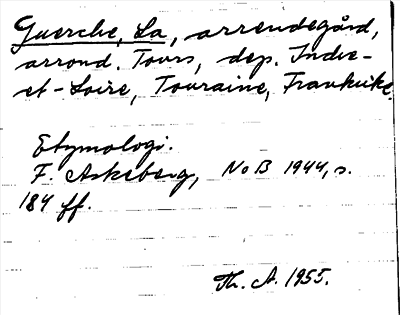 Guerche, La, arrendegård,
arrond. Tours, dep. Indre-
et-Loire, Touraine, Frankrike.
Etymologi.
F. Askeberg, NoB 1944, s.
184 ff.
Th. A. 1955.